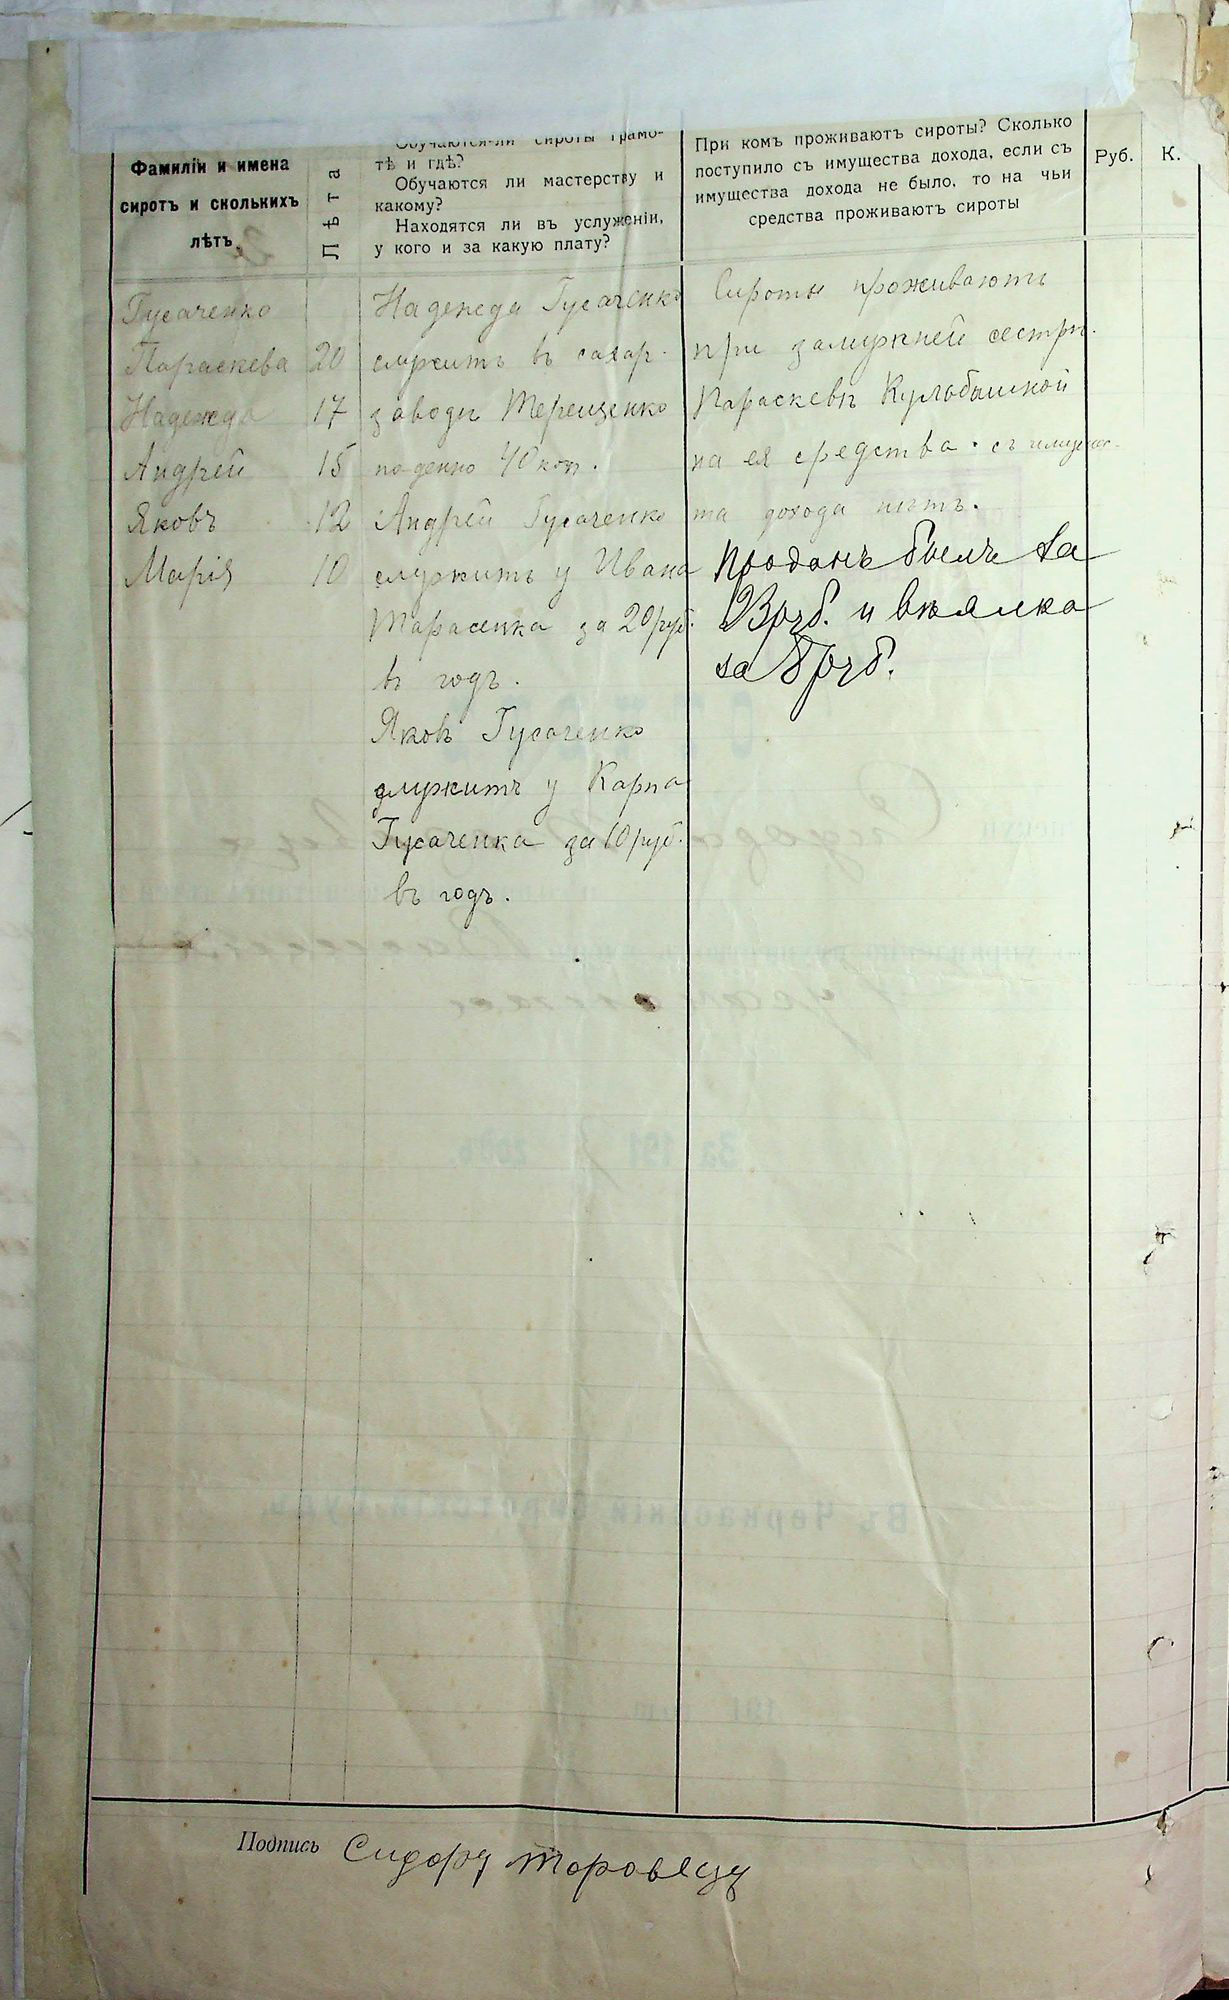 Фамиліи и имена
сиротъ и сколькихъ
лѣтъ.
Лѣта
Обучаются-ли сироты грамо-
тѣ и гдѣ?
Обучаются ли мастерству и
какому?
Находятся ли въ услуженіи,
у кого и за какую плату?
При комъ проживаютъ сироты? Сколько
поступило съ имущества дохода, если съ
имущества дохода не было, то на чьи
средства проживаютъ сироты
Руб.
К.
Гусаченко
Параскева 20
Надежда 17
Андрей 15
Яковъ 12
Марія 10
Надежда Гусаченко
служитъ въ сахар.
заводѣ Терещенко
поденно 40 коп.
Андрей Гусаченко
служитъ у Ивана
Тарасенка за 20 руб.
въ годъ.
Яковъ Гусаченко
служитъ у Карпа
Гусаченка за 10 руб.
въ годъ.
Сироты проживаютъ
при замужней сестрѣ
Параскевѣ
на ея средства. съ имущес-
тва дохода нѣтъ.
Проданъ былъ за
руб. и вѣялка
за руб.
За 191 годъ.
Въ Черкасскій Сиротскій Судъ.
191
Подпись Сидоръ